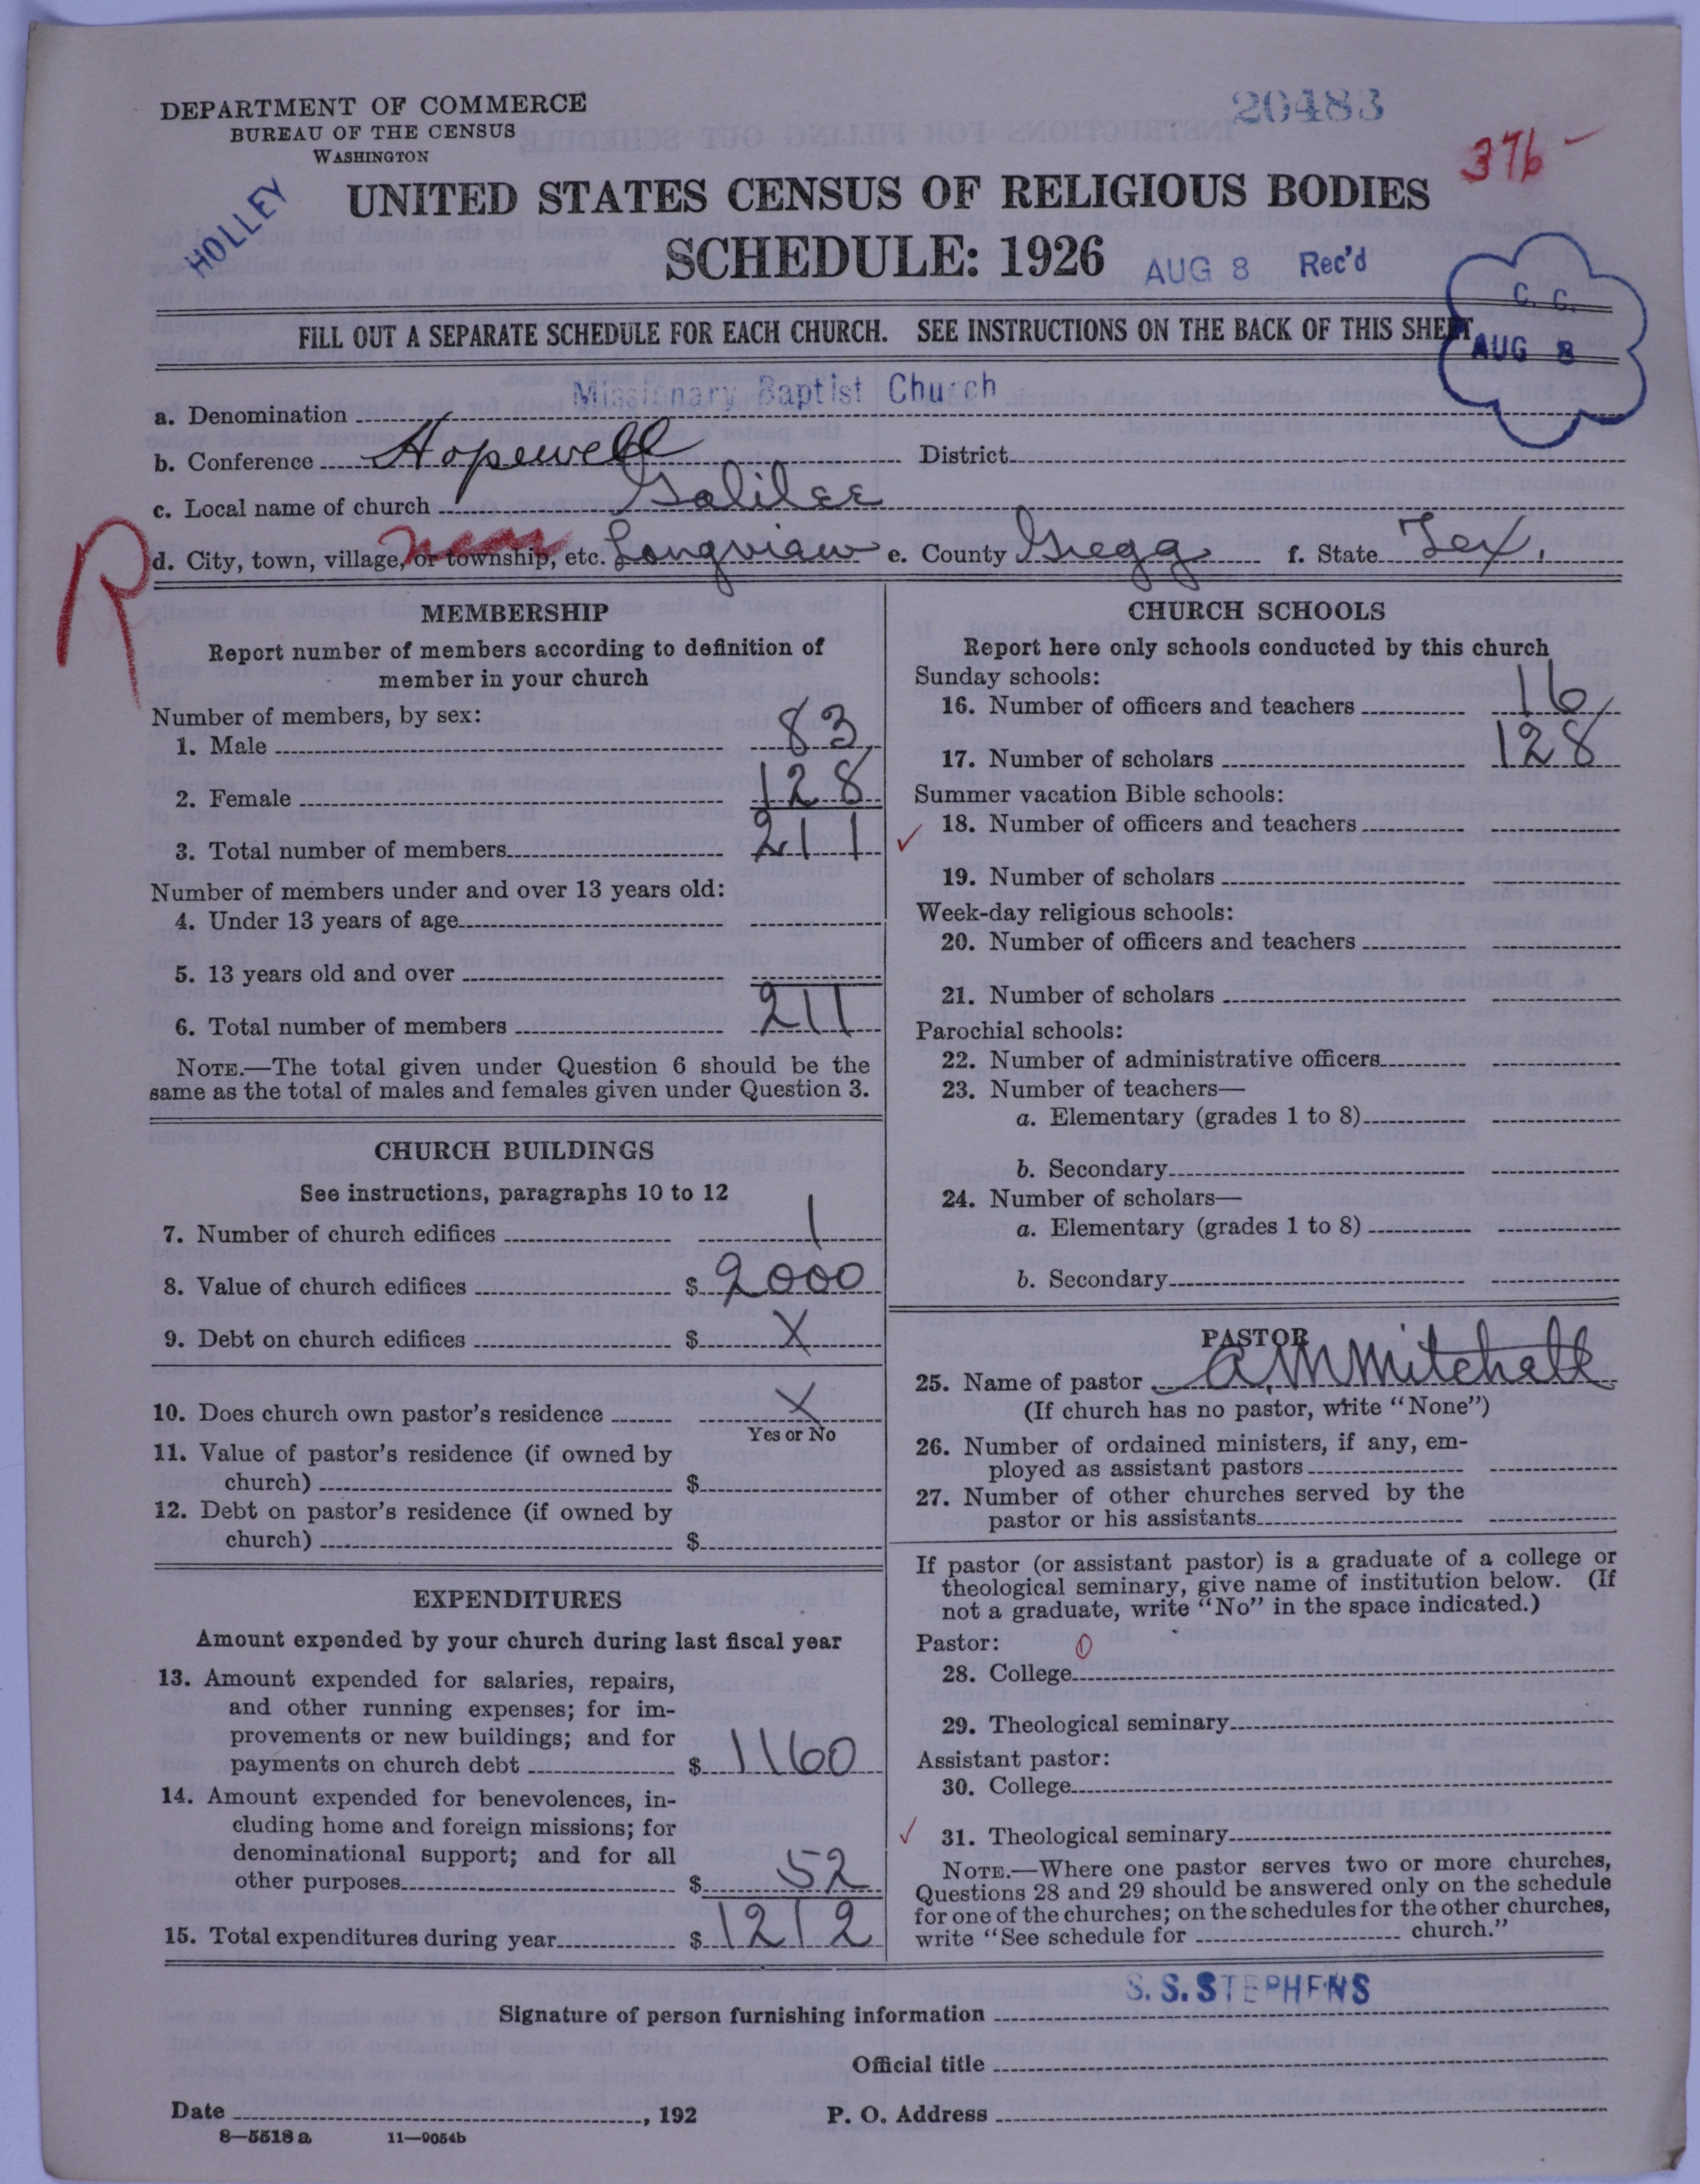 DEPARTMENT OF COMMERCE
BUREAU OF THE CENSUS
WASHINGTON
20483
376-
HOLLEY
UNITED STATES CENSUS OF RELIGIOUS BODIES
SCHEDULE: 1926
AUG 8 Rec'd
C. C.
AUG 8
FILL OUT A SEPARATE SCHEDULE FOR EACH CHURCH. SEE INSTRUCTIONS ON THE BACK OF THIS SHEET
a. Denomination Missionary Baptist Church
b. Conference Hopewell District
c. Local name of church Galilee
R
d. City, town, village, or township, etc. near Longview e. County Gregg f. State Tex.
MEMBERSHIP
Report number of members according to definition of
member in your church
Number of members, by sex:
1. Male 83
2. Female 128
3. Total number of members 211
Number of members under and over 13 years old:
4. Under 13 years of age
5. 13 years old and over
6. Total number of members 211
NOTE.—The total given under Question 6 should be the
same as the total of males and females given under Question 3.
CHURCH BUILDINGS
See instructions, paragraphs 10 to 12
7. Number of church edifices 1
8. Value of church edifices $ 2000
9. Debt on church edifices $ X
10. Does church own pastor's residence X
Yes or No
11. Value of pastor's residence (if owned by
church) $
12. Debt on pastor's residence (if owned by
church) $
EXPENDITURES
Amount expended by your church during last fiscal year
13. Amount expended for salaries, repairs,
and other running expenses; for im-
provements or new buildings; and for
payments on church debt $ 1160
14. Amount expended for benevolences, in-
cluding home and foreign missions; for
denominational support; and for all
other purposes $ 52
15. Total expenditures during year $ 1212
CHURCH SCHOOLS
Report here only schools conducted by this church
Sunday schools:
16. Number of officers and teachers 16
17. Number of scholars 128
Summer vacation Bible schools:
18. Number of officers and teachers
19. Number of scholars
Week-day religious schools:
20. Number of officers and teachers
21. Number of scholars
Parochial schools:
22. Number of administrative officers
23. Number of teachers—
a. Elementary (grades 1 to 8)
b. Secondary
24. Number of scholars—
a. Elementary (grades 1 to 8)
b. Secondary
PASTOR
25. Name of pastor A. M Mitchell
(If church has no pastor, write "None")
26. Number of ordained ministers, if any, em-
ployed as assistant pastors
27. Number of other churches served by the
pastor or his assistants
If pastor (or assistant pastor) is a graduate of a college or
theological seminary, give name of institution below. (If
not a graduate, write "No" in the space indicated.)
Pastor: 0
28. College
29. Theological seminary
Assistant pastor:
30. College
31. Theological seminary
NOTE.—Where one pastor serves two or more churches,
Questions 28 and 29 should be answered only on the schedule
for one of the churches; on the schedules for the other churches,
write "See schedule for church."
S. S. STEPHENS
Signature of person furnishing information
Official title
Date , 192
P. O. Address
8—5518 a 11—9054b